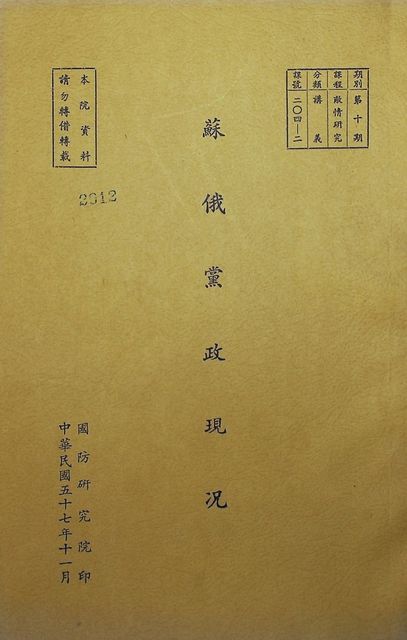 期別 第十期
課程 敵情研究
分類 講義
課號 二〇四—二
蘇俄黨政現況
本院資料
請勿轉借轉載
2012
國防研究院印
中華民國五十七年十一月